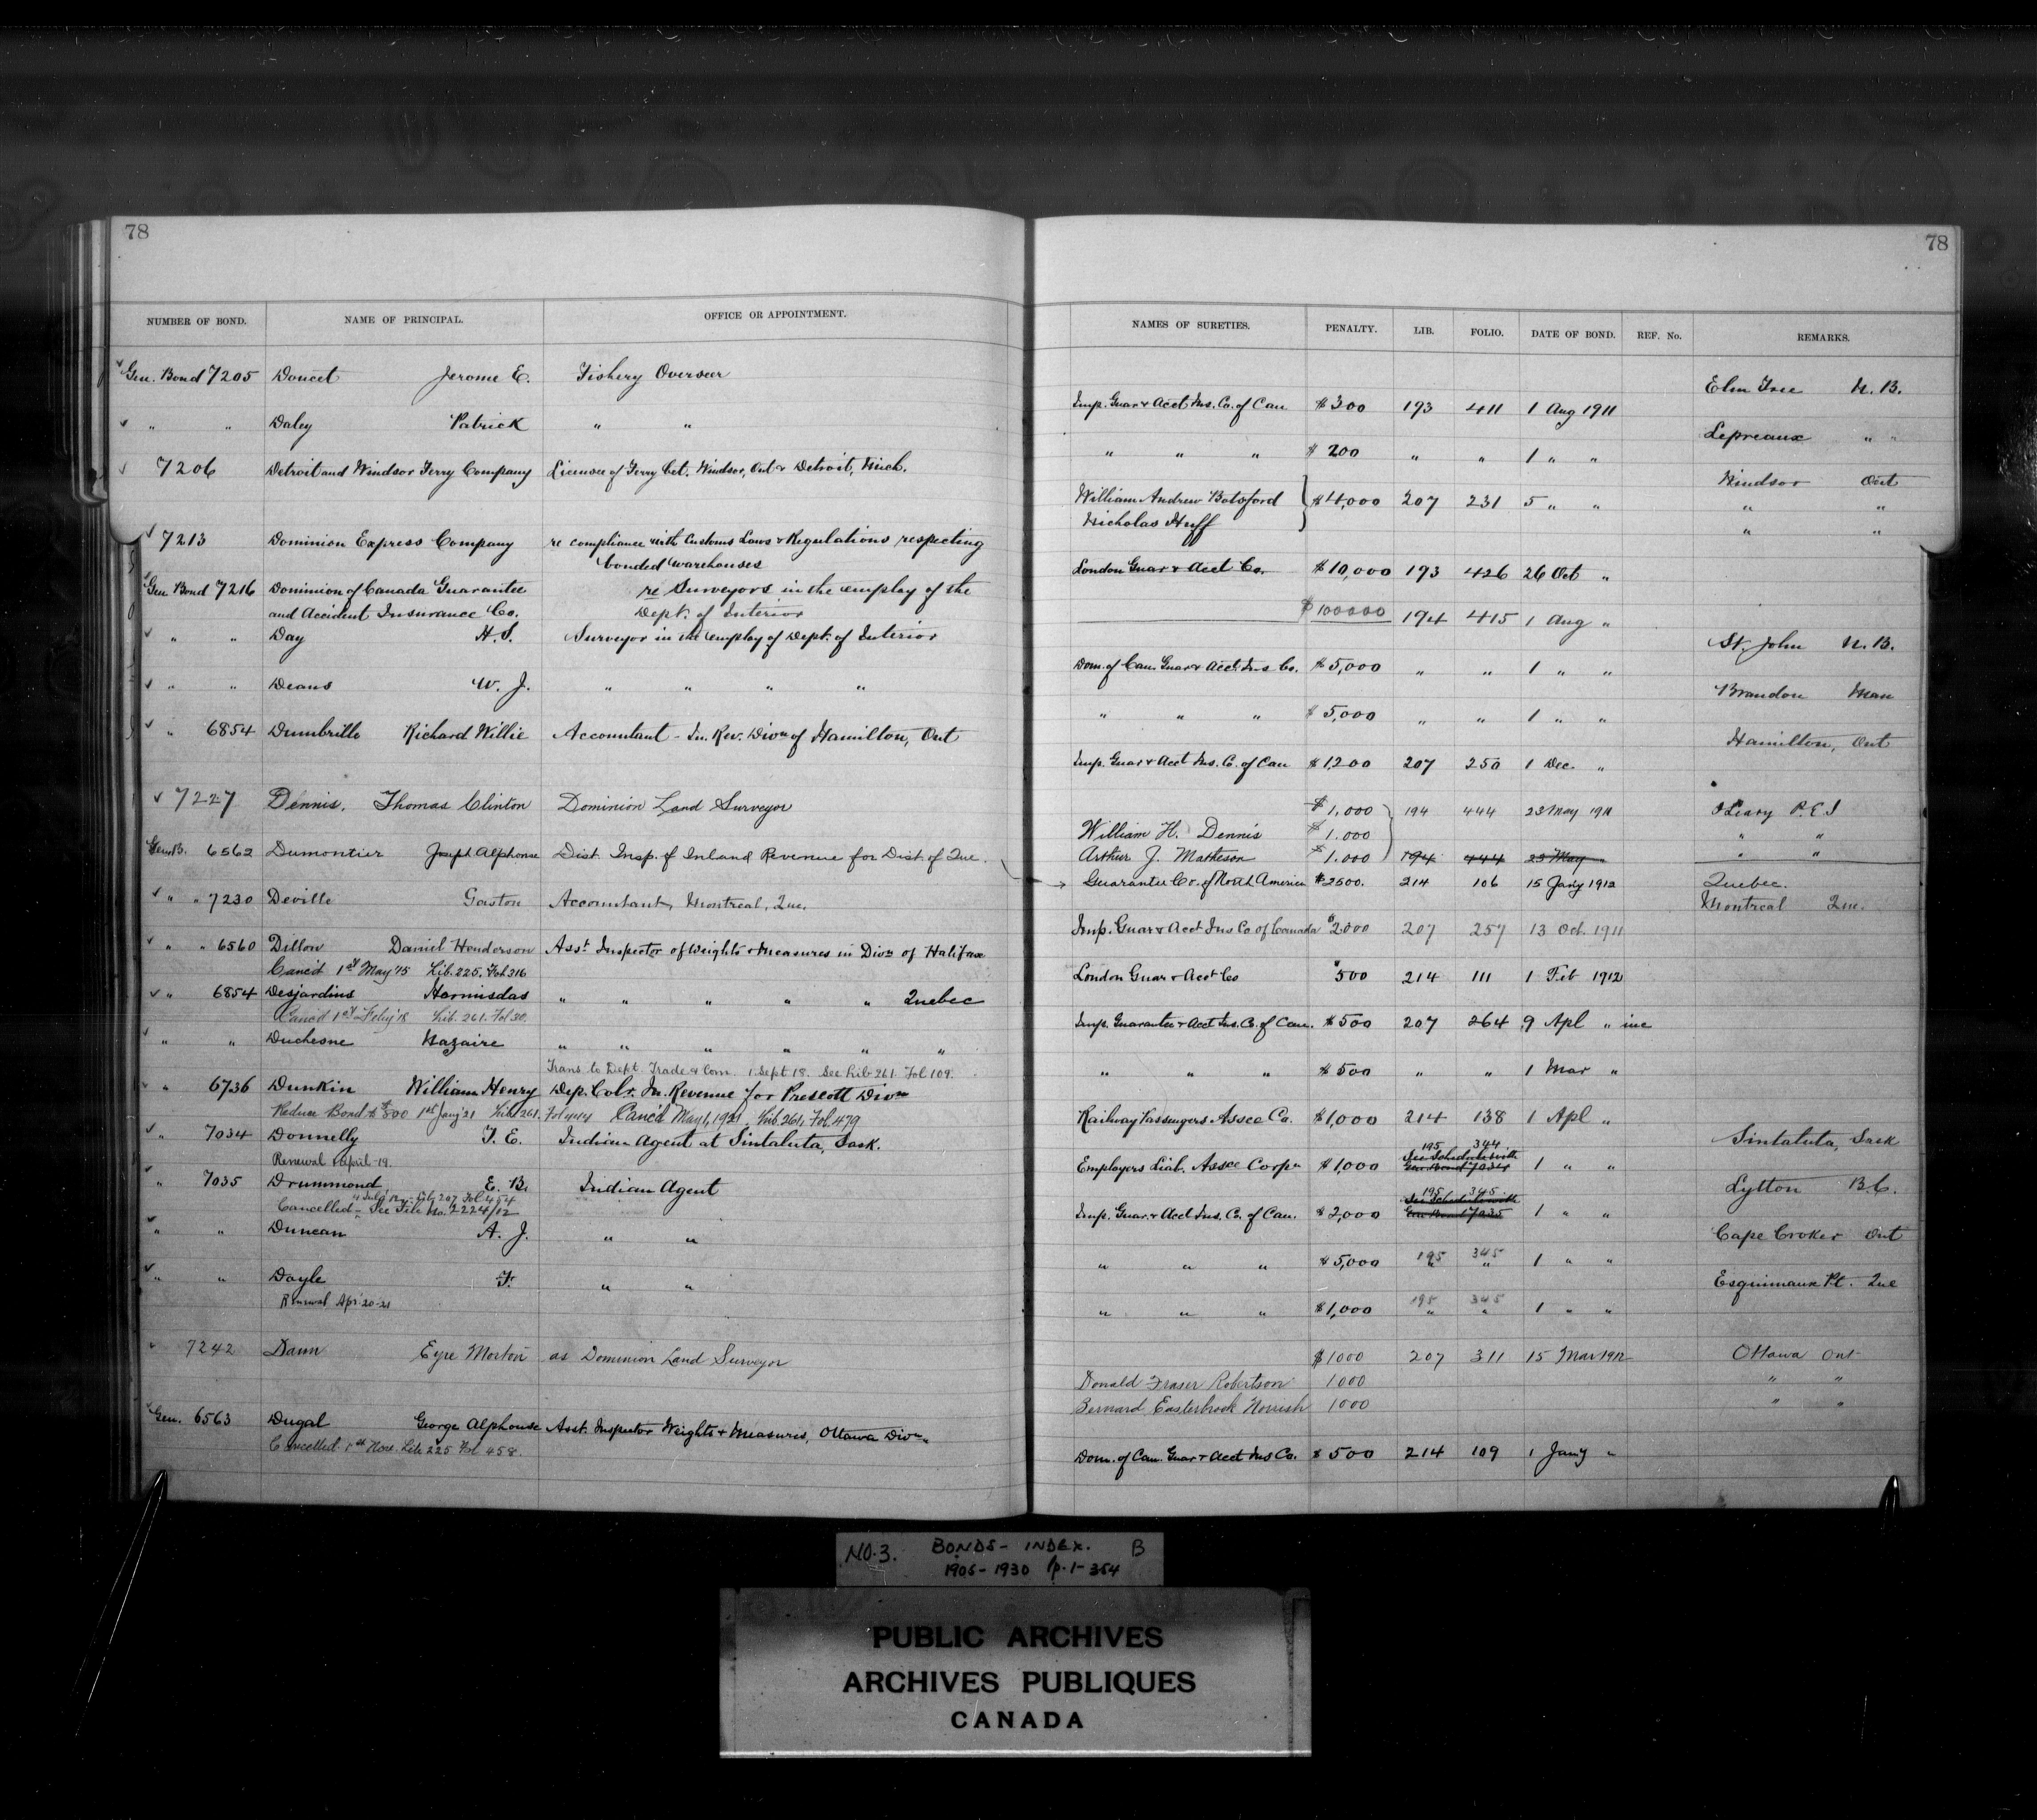 78
NUMBER OF BOND. NAME OF PRINCIPAL. OFFICE OR APPOINTMENT.
Gen. Bond 7205 Doucet Jerome E. Fishery Overseer
" " Daley Patrick " "
7206 Detroit and Windsor Ferry Company Licensee of Ferry bet. Windsor, Ont & Detroit, Mich.
7213 Dominion Express Company re compliance with Customs Laws & Regulations respecting
bonded warehouses
Gen Bond 7216 Dominion of Canada Guarantee re Surveyors in the employ of the
and Accident Insurance Co. Dept. of Interior
" " Day H.S. Surveyor in the employ of Dept. of Interior
" " Deans W. J. " " " "
" 6854 Dumbrille Richard Willie Accountant - In. Rev. Divn of Hamilton, Ont
7227 Dennis, Thomas Clinton Dominion Land Surveyor
Gen. B. 6562 Dumontier Joseph Alphonse Dist. Insp. of Inland Revenue for Dist. of Que.
" " 7230 Deville Gaston Accountant, Montreal, Que.
" " 6560 Dillon Daniel Henderson Asst. Inspector of Weights & Measures in Divn of Halifax
Canc'd 1st May '15 Lib. 225, Fol 316
" 6854 Desjardins Hormisdas " " " " " Quebec
Canc'd 1st Feby '18 Lib. 261. Fol 30.
" " Duchesne Nazaire " " " " " "
Trans to Dept. Trade & Com. 1 Sept 18. See Lib 261 Fol 109.
" 6736 Dunkin William Henry Dep. Colr. In. Revenue for Prescott Divn
Reduce Bond to $800 1st Jany '21 Lib. 261. Fol 444 Canc'd May 1, 1921. Lib. 261, Fol. 479
" 7034 Donnelly T. E. Indian Agent at Sintaluta, Sask.
Renewal April-19.
" 7035 Drummond E. B. Indian Agent
Lib 207 Fol 454
Cancelled - See File No. 2224/12
" " Duncan A. J. " "
" " Doyle F. " "
Renewal Apr 20-21
" 7242 Dann Eyre Morton as Dominion Land Surveyor
Gen. 6563 Dugal George Alphonse Asst. Inspector Weights & Measures, Ottawa Divn.
Cancelled 1st Nov. Lib 225 Fol 458.
78
NAMES OF SURETIES. PENALTY. LIB. FOLIO. DATE OF BOND. REF. No. REMARKS.
Elm Tree N. B.
Imp. Guar & Acct Ins. Co. of Can $300 193 411 1 Aug 1911
Lepreaux " "
" " " $ 200 " " 1 " "
Windsor Ont
William Andrew Botsford $4,000 207 231 5 " " " "
Nicholas Huff " "
London Guar & Acct Co. $10,000 193 426 26 Oct "
$100000 194 415 1 Aug "
St. John N. B.
Dom. of Can. Guar & Acct. Ins Co. $5,000 " " 1 " "
Brandon Man
" " " $ 5,000 " " 1 " "
Hamilton, Ont
Imp. Guar & Acct Ins. Co. of Can $1,200 207 250 1 Dec. "
$1,000 194 444 23 May 1911 O'Leary P. E. I
William H. Dennis $1.000 " "
Arthur J. Matheson $1.000 194 444 23 May " " "
Guarantee Co. of North America $2500. 214 106 15 Jany 1912 Quebec.
Montreal Que.
Imp. Guar & Acct Ins Co of Canada $2000 207 257 13 Oct. 1911
London Guar & Acct Co $500 214 111 1 Feb 1912
Imp. Guarantee & Acct Ins. Co. of Can. $500 207 264 9 Apl " inc
" " " $500 " " 1 Mar "
Railway Passengers Assce Co. $1,000 214 138 1 Apl "
Sintaluta, Sask
195 344
Employers Liab. Assce Corpn $1,000 See Schedule with Gen Bond 7034 1 " "
Lytton B. C.
195 345
Imp. Guar. & Acct Ins. Co. of Can. $2,000 See Schedule with Gen Bond 7035 1 " "
Cape Croker Ont
195 345
" " " $5,000 " " 1 " "
Esquimaux Pt. Que
195 345
" " " $1,000 " " 1 " "
$1000 207 311 15 Mar 1912 Ottawa Ont
Donald Fraser Robertson 1000 " "
Bernard Easterbrook Norrish 1000 " "
Dom. of Can. Guar & Acct Ins Co. $500 214 109 1 Jany "
NO. 3. BONDS - INDEX. B
1905-1930 p. 1-354
PUBLIC ARCHIVES
ARCHIVES PUBLIQUES
CANADA